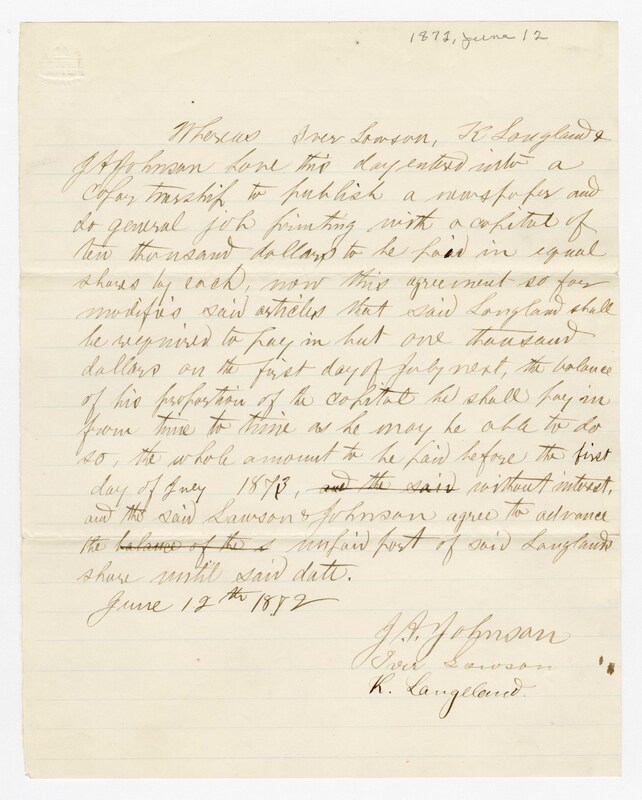 1872, June 12
Whereas Iver Lawson, K Langland &
J A Johnson have this day entered into a
Copartnership to publish a newspaper and
do general job printing with a capital of
ten thousand dollars to be paid in equal
shares by each, now this agreement so far
modifies said articles that said Langland shall
be required to pay in but one thousand
dollars on the first day of July next, the balance
of his proportion of the capital he shall pay in
from time to time as he may be able to do
so, the whole amount to be paid before the first
day of July 1873, and the said without interest,
and the said Lawson & Johnson agree to advance
the balance of the s unpaid part of said Langlands
share until said date.
June 12th 1872
J. A. Johnson
Iver Lawson
K. Langeland.